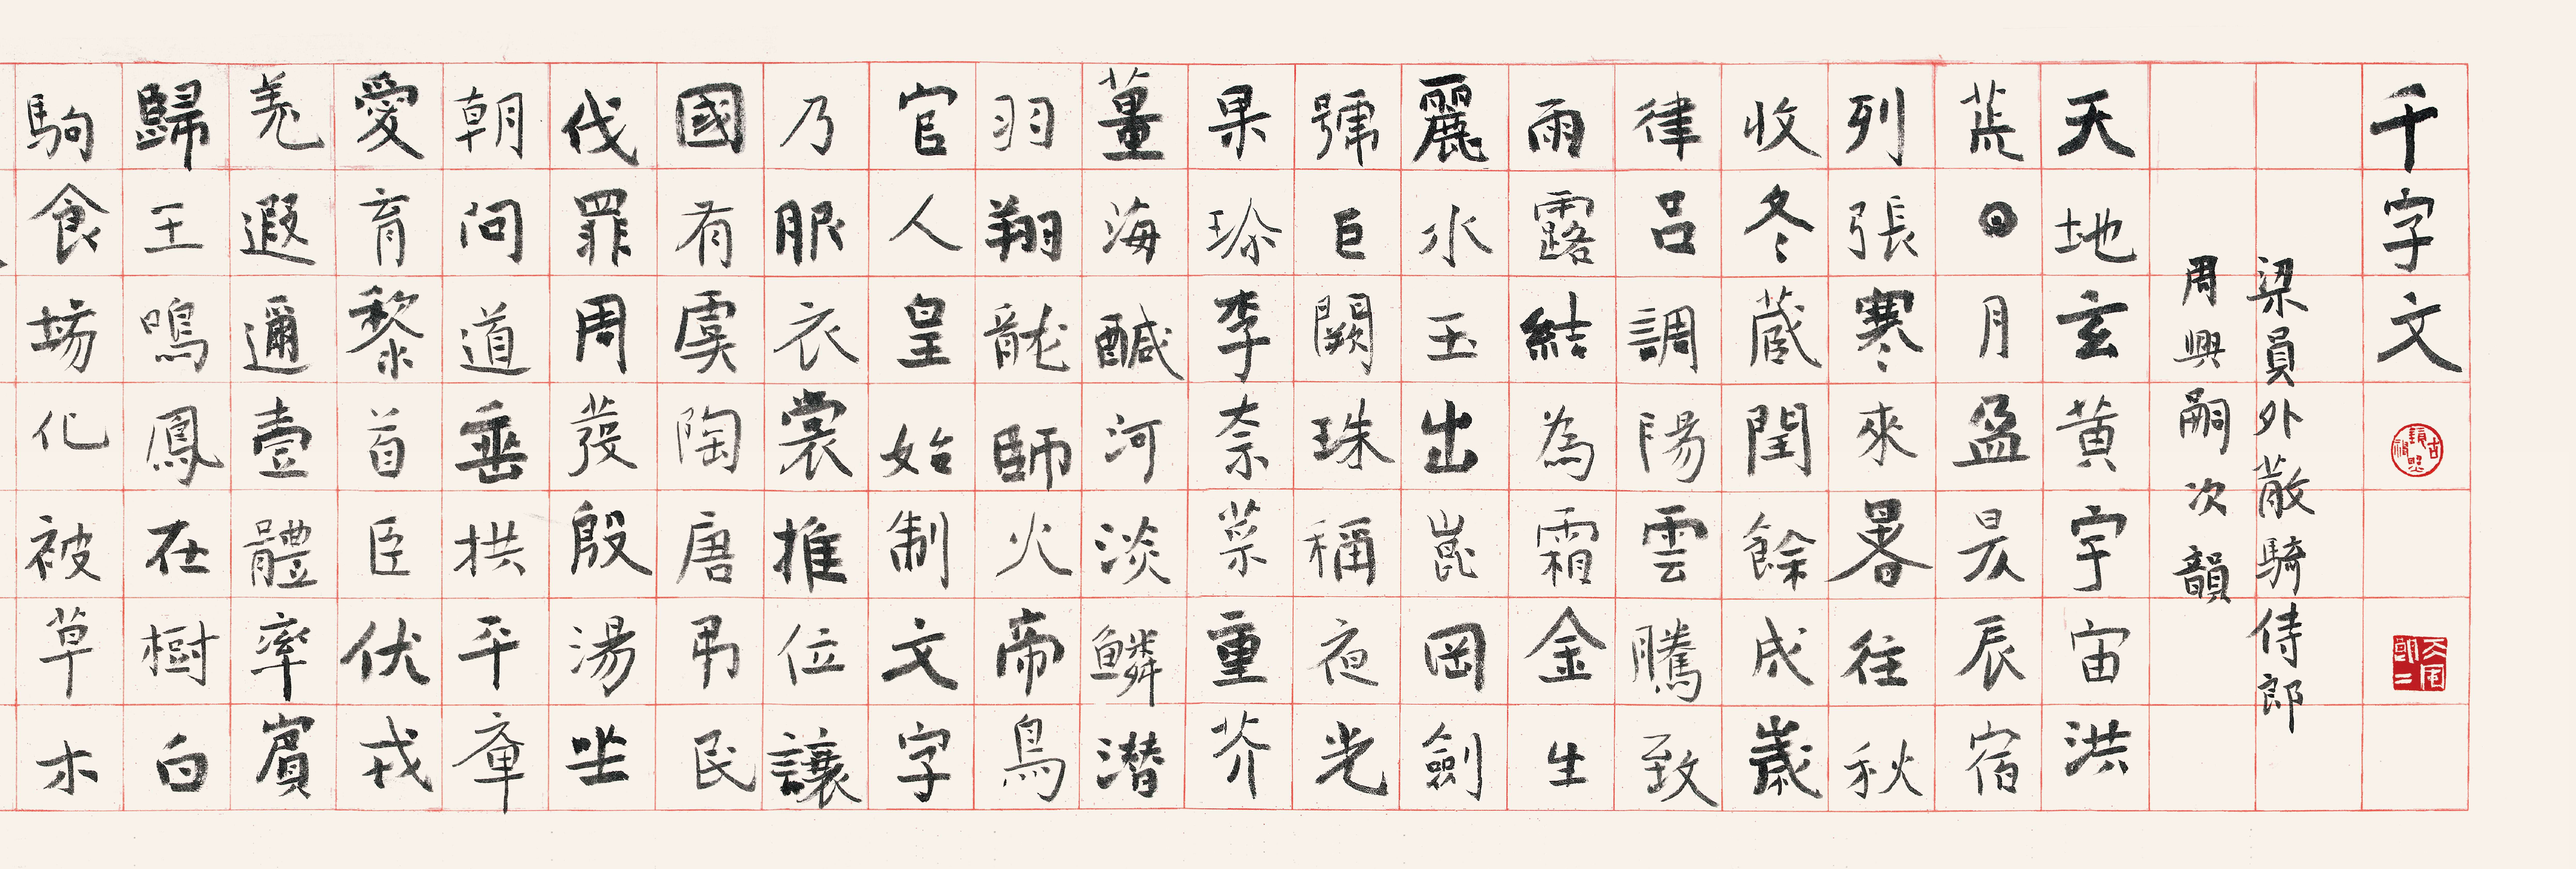 千字文
梁員外散騎侍郎
周興嗣次韻
天地玄黃宇宙洪
荒日月盈昃辰宿
列張寒來暑往秋
收冬藏閏餘成歲
律呂調陽雲騰致
雨露結為霜金生
麗水玉出崑岡劍
號巨闕珠稱夜光
果珎李奈菜重芥
薑海醎河淡鱗潜
羽翔龍師火帝鳥
官人皇始制文字
乃服衣裳推位讓
國有虞陶唐弔民
伐罪周發殷湯坐
朝問道垂拱平章
愛育黎首臣伏戎
羌遐邇壹體率賓
歸王鳴鳳在樹白
駒食場化被草木